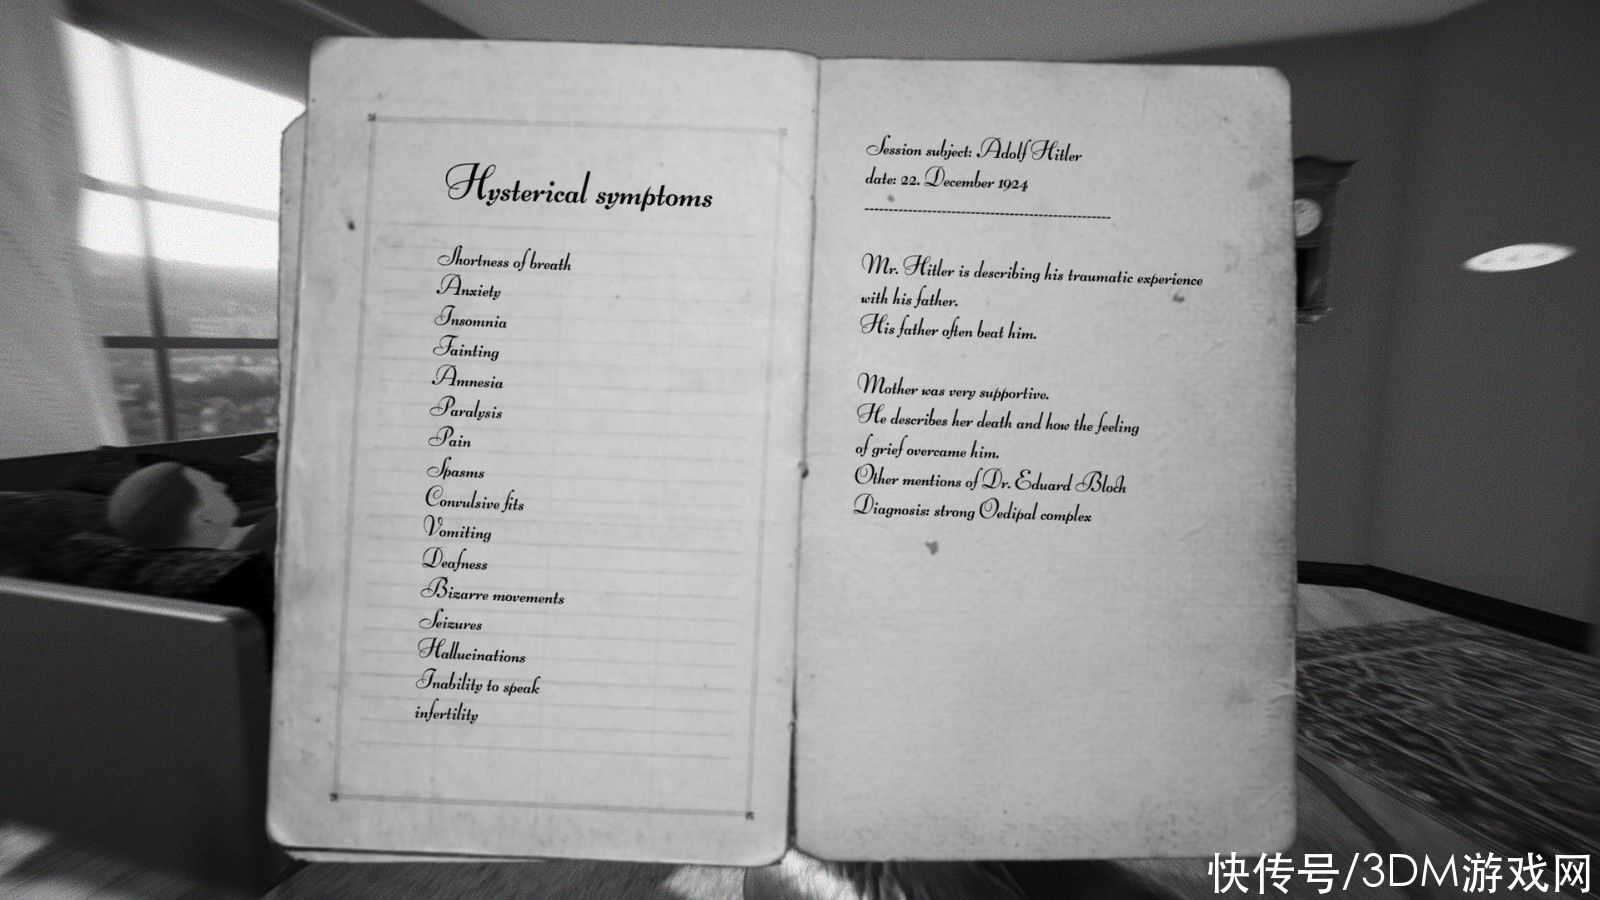 Hysterical symptoms
Shortness of breath
Anxiety
Insomnia
Fainting
Amnesia
Paralysis
Pain
Spasms
Convulsive fits
Vomiting
Deafness
Bizarre movements
Seizures
Hallucinations
Inability to speak
infertility
Session subject: Adolf Hitler
date: 22. December 1924
--------------------------------------------------
Mr. Hitler is describing his traumatic experience
with his father.
His father often beat him.
Mother was very supportive.
He describes her death and how the feeling
of grief overcame him.
Other mentions of Dr. Eduard Bloch
Diagnosis: strong Oedipal complex
快传号/3DM游戏网